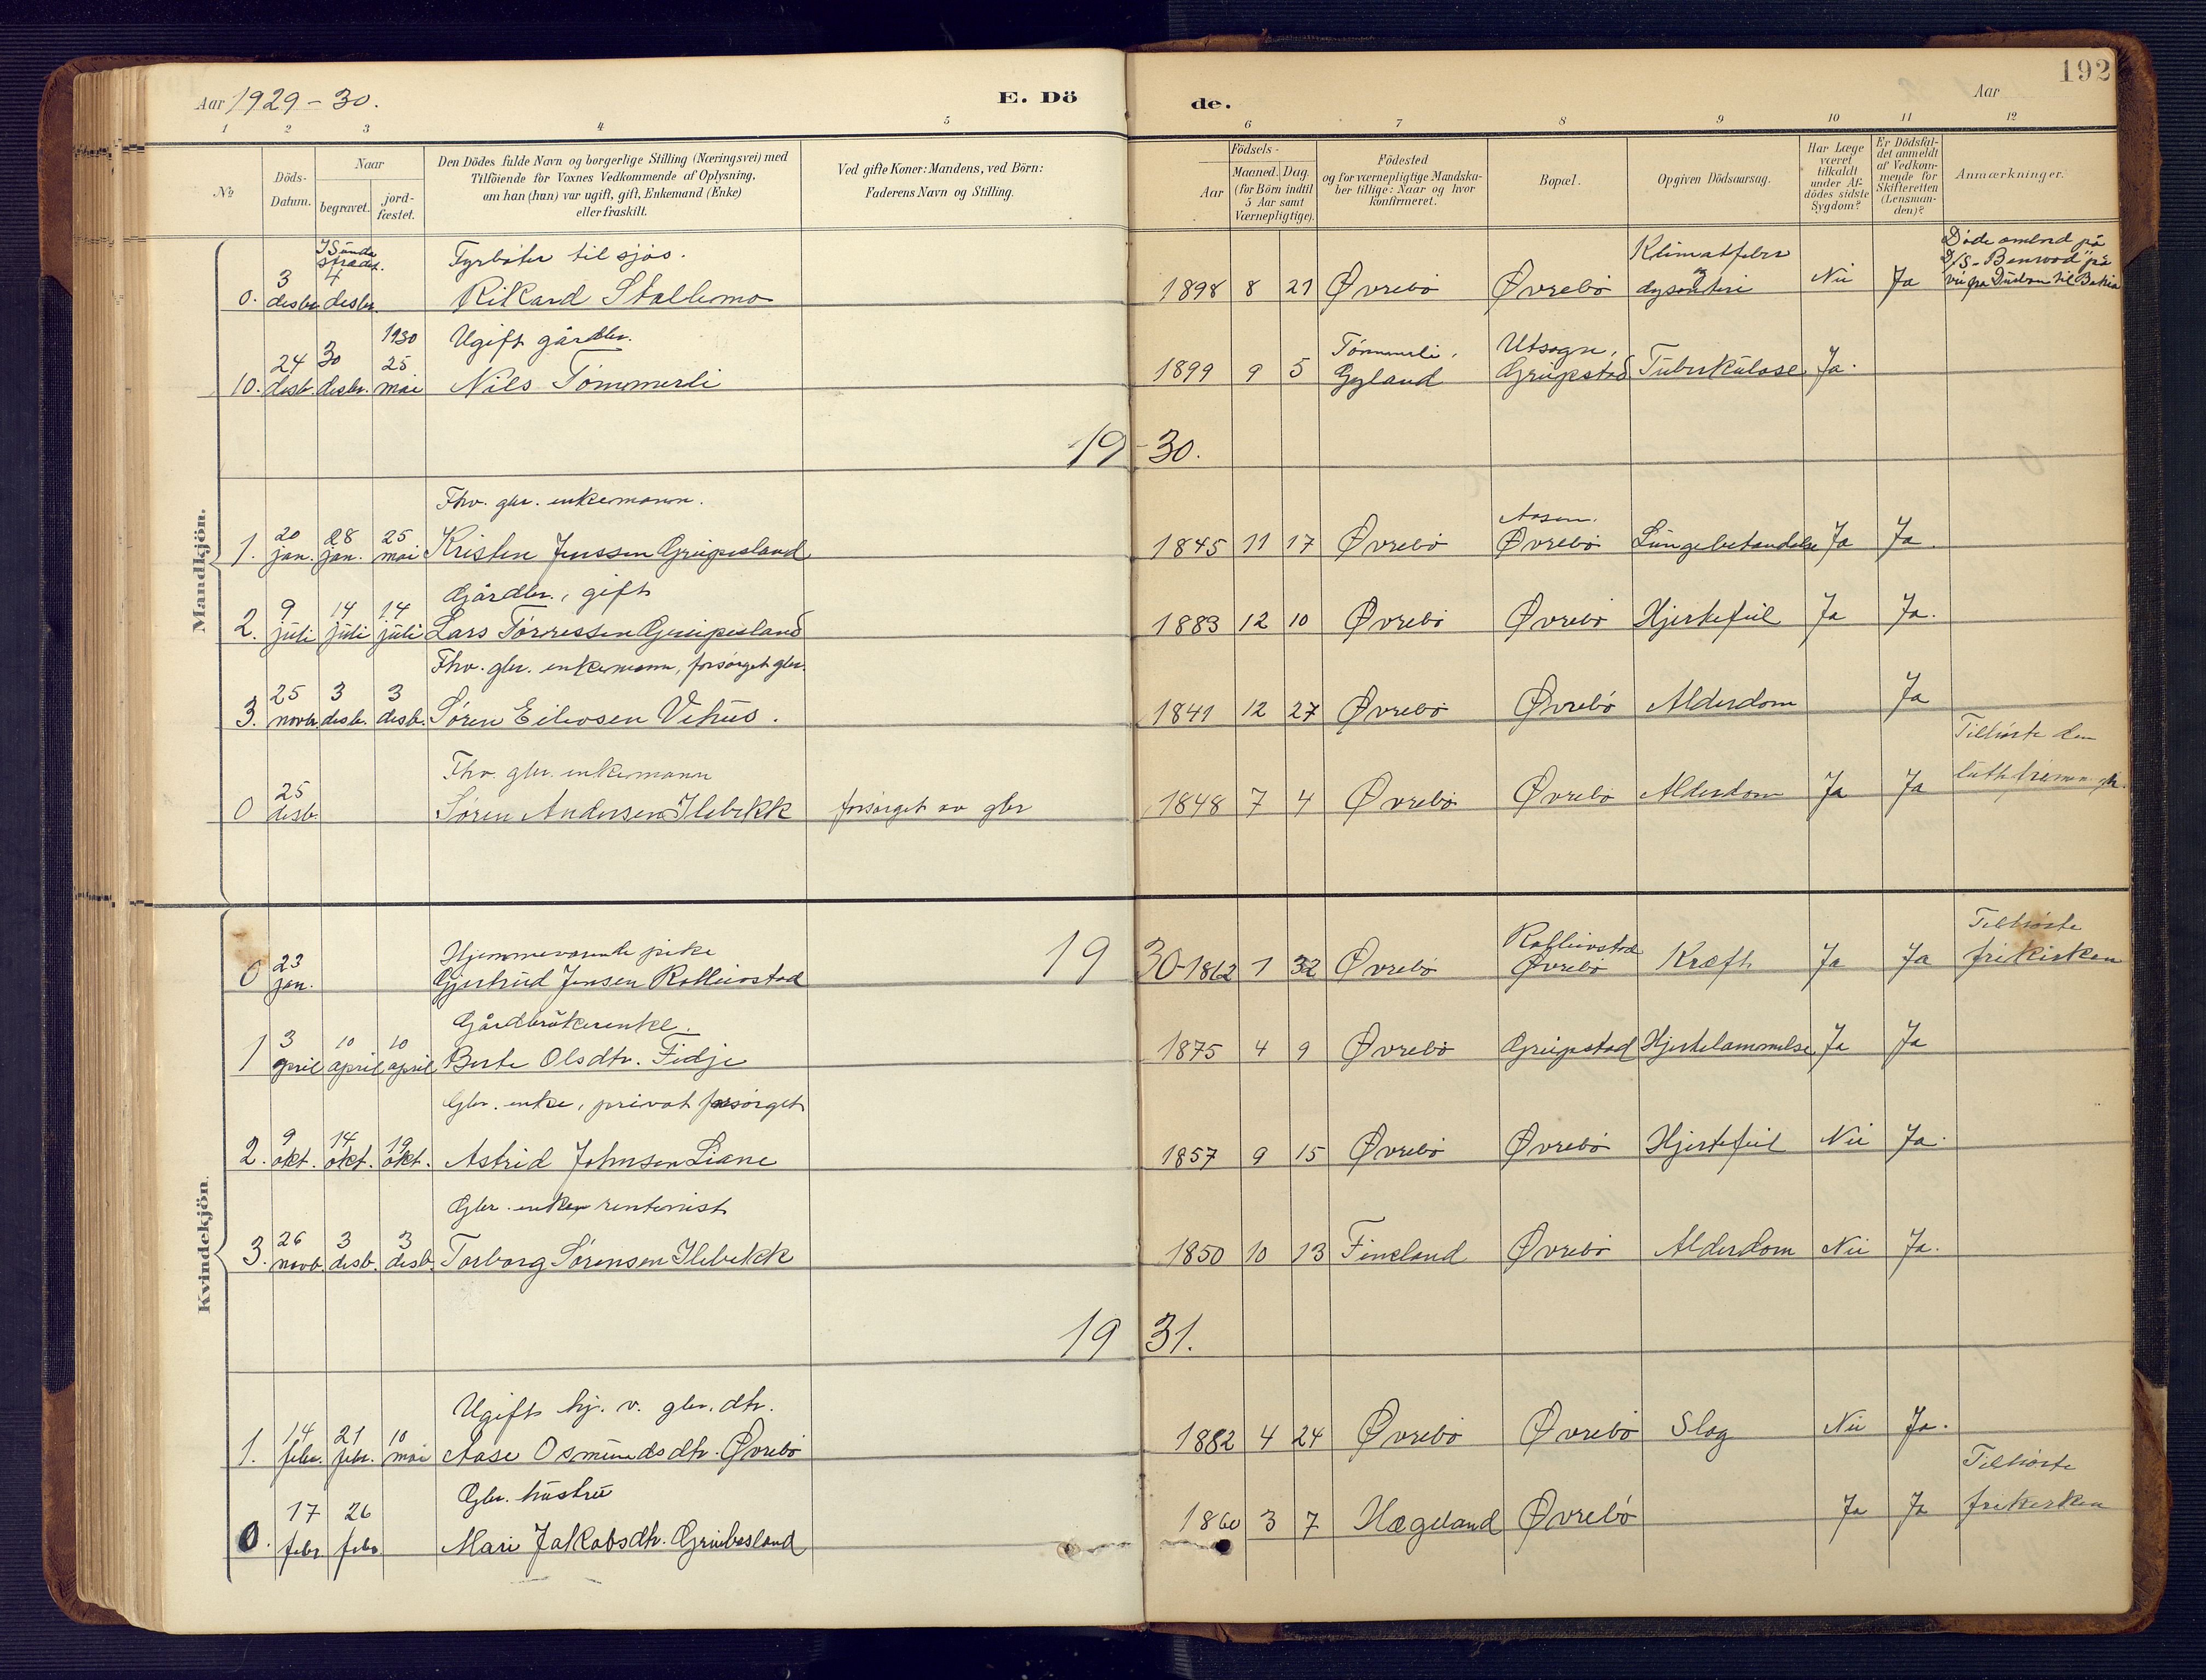 192
Aar 1929-30.
E. Dö
de.
Aar
1 2 3 4 5 6 7 8 9 10 11 12
No
Döds-
Datum.
Naar
begravet.
jord-
fæstet.
Den Dödes fulde Navn og borgerlige Stilling (Næringsvei) med
Tilföiende for Voxnes Vedkommende af Oplysning,
om han (hun) var ugift, gift, Enkemand (Enke)
eller fraskilt.
Ved gifte Koner: Mandens, ved Börn:
Faderens Navn og Stilling.
Födsels-
Aar
Maaned. Dag.
(for Börn indtil
5 Aar samt
Værnepligtige).
Födested
og for værnepligtige Mandska-
ber tillige: Naar og hvor
konfirmeret.
Bopæl.
Opgiven Dödsaarsag.
Har Læge
været
tilkaldt
under Af-
dödes sidste
Sygdom?
Er Dödsfal-
det anmeldt
af Vedkom-
mende for
Skifteretten
(Lensman-
den)?
Anmærkninger.
Mandkjön.
I Sunda
strædet.
Fyrböter til sjös.
Klimatfeber
og
Døde ombord på
D/S "Benwood" på
vei fra Durban til Bahia
0. 3 desbr. 4 desbr. Rikard Stallemo 1898 8 21 Øvrebö Øvrebö dysenteri Nei Ja
1930
Ugift gårdbr.
Tömmerli, Utsogn,
10. 24 desb. 30 desbr. 25 mai Nils Tömmerli 1899 9 5 Gyland Greipstad Tuberkulose Ja.
19-30.
Fhv. gbr. enkemann.
Aasen.
1. 20 jan. 28 jan. 25 mai Kristen Jenssen Greipesland 1845 11 17 Øvrebö Øvrebö Lungebetændelse Ja Ja.
Gårdbr., gift
2. 9 juli 14 juli 14 juli Lars Törressen Greipesland 1883 12 10 Øvrebö Øvrebö Hjertefeil Ja Ja.
Fhv. gbr. enkemann, forsörget gbr.
3. 25 novbr. 3 desbr. 3 desb. Sören Eilevsen Vehus. 1841 12 27 Øvrebö Øvrebö Alderdom Ja
Fhv. gbr. enkemann
Tilhörte den
luth. frimen.
0 25 desb. Sören Andersen Ilebekk forsörget av gbr 1848 7 4 Øvrebö Øvrebö Alderdom Ja Ja
Kvindekjön
Hjemmeværende pike
Rolleivstad
Tilhörte
0 23 jan. Gjertrud Jensen Rolleivstad 19 30 1862 1 32 Øvrebö Øvrebö Kræft Ja Ja frikirken
Gårdbrukerenke.
1 3 april 10 april 10 april Berte Olsdtr. Fidje 1875 4 9 Øvrebö Greipstad Hjertelammelse Ja Ja
Gbr. enke, privat forsörget
2. 9 okt. 14 okt. 19 okt. Astrid Johnsen Liane 1857 9 15 Øvrebö Øvrebö Hjertefeil Nei Ja.
Gbr. enke rentenist
3. 26 novb. 3 desb. 3 desb. Torborg Sörensen Ilebekk 1850 10 13 Finsland Øvrebö Alderdom Nei Ja.
19 31.
Ugift hj. v. gbr. dtr.
1. 14 febr. 21 febr. 10 mai Aase Osmundsdtr. Øvrebö 1882 4 24 Øvrebö Øvrebö Slag Nei Ja.
Gbr. hustru
Tilhörte
0. 17 febr 26 febr Mari Jakobsdtr. Greibesland 1860 3 7 Hægeland Øvrebö Ja Ja frikirken